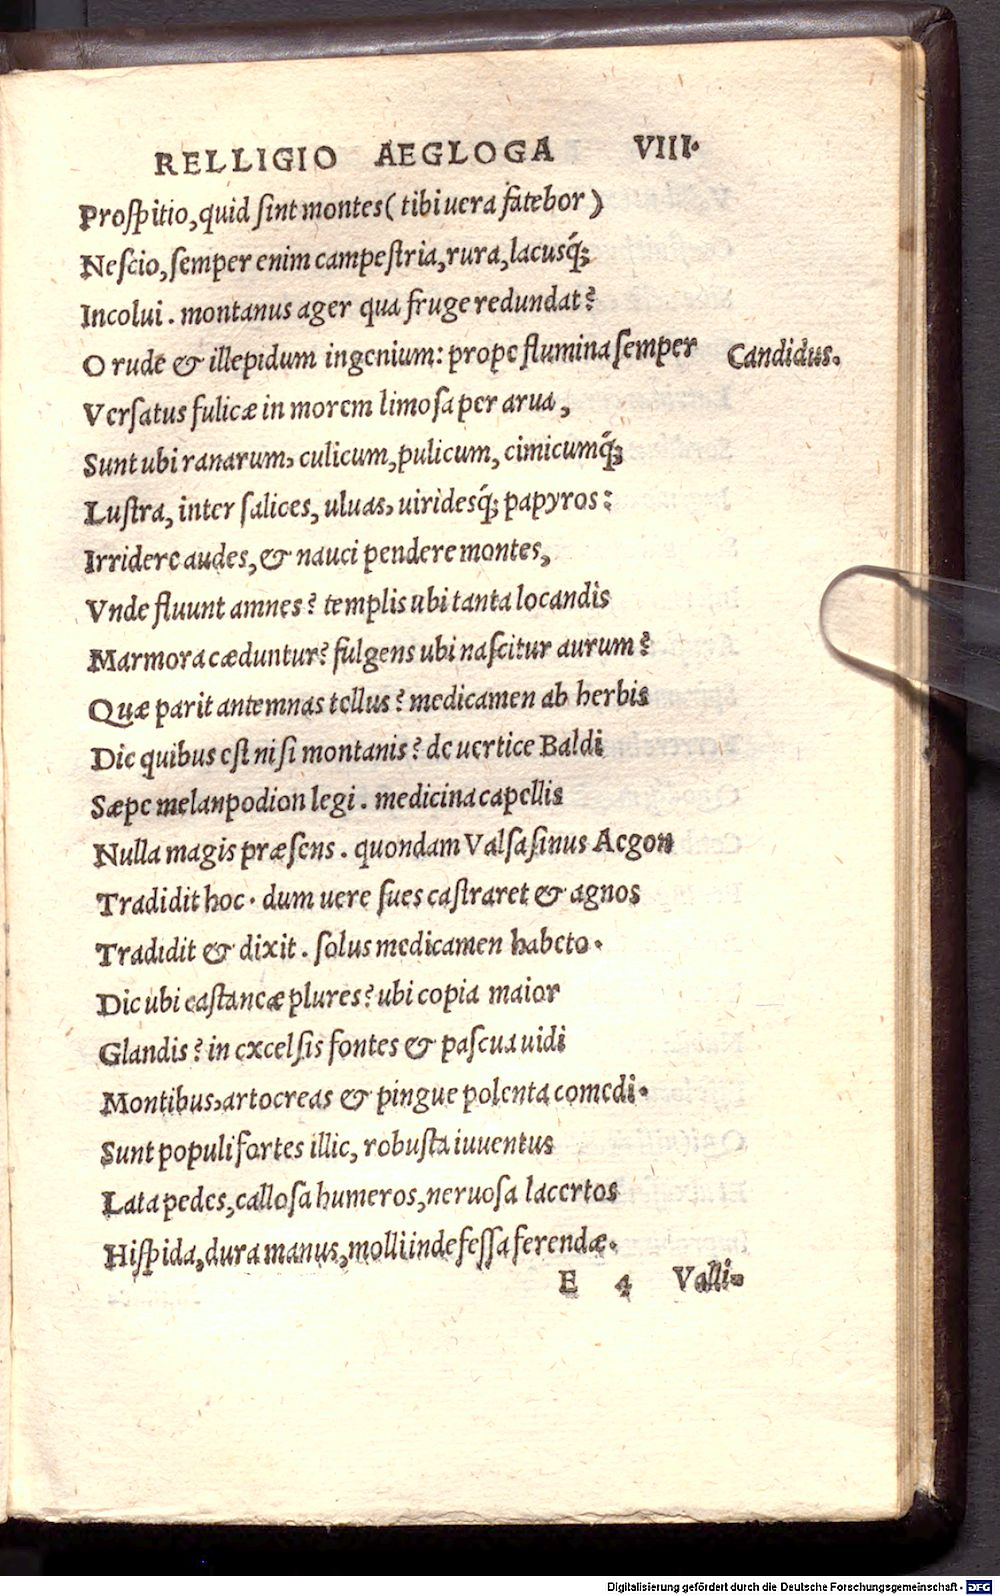 RELLIGIO AEGLOGA VIII.
Proſpitio, quid ſint montes ( tibi uera fatebor )
Neſcio, ſemper enim campeſtria, rura, lacusq́;
Incolui. montanus ager qua fruge redundat?
O rude & illepidum ingenium: prope flumina ſemper Candidus.
Verſatus fulicæ in morem limoſa per arua,
Sunt ubi ranarum, culicum, pulicum, cimicumq́;
Luſtra, inter ſalices, uluas, uiridesq́; papyros:
Irridere audes, & nauci pendere montes,
Vnde fluunt amnes? templis ubi tanta locandis
Marmora cæduntur? fulgens ubi naſcitur aurum?
Quæ parit antemnas tellus? medicamen ab herbis
Dic quibus eſt niſi montanis? de uertice Baldi
Sæpe melanpodion legi. medicina capellis
Nulla magis præſens. quondam Valſaſinus Aegon
Tradidit hoc. dum uere ſues caſtraret & agnos
Tradidit & dixit. ſolus medicamen habeto.
Dic ubi caſtaneæ plures? ubi copia maior
Glandis? in excelſis fontes & paſcua uidi
Montibus, artocreas & pingue polenta comedi.
Sunt populi fortes illic, robuſta iuuentus
Lata pedes, calloſa humeros, neruoſa lacertos
Hiſpida, dura manus, molli indefeſſa ferendæ.
E 4 Valli-
Digitalisierung gefördert durch die Deutsche Forschungsgemeinschaft - DFG